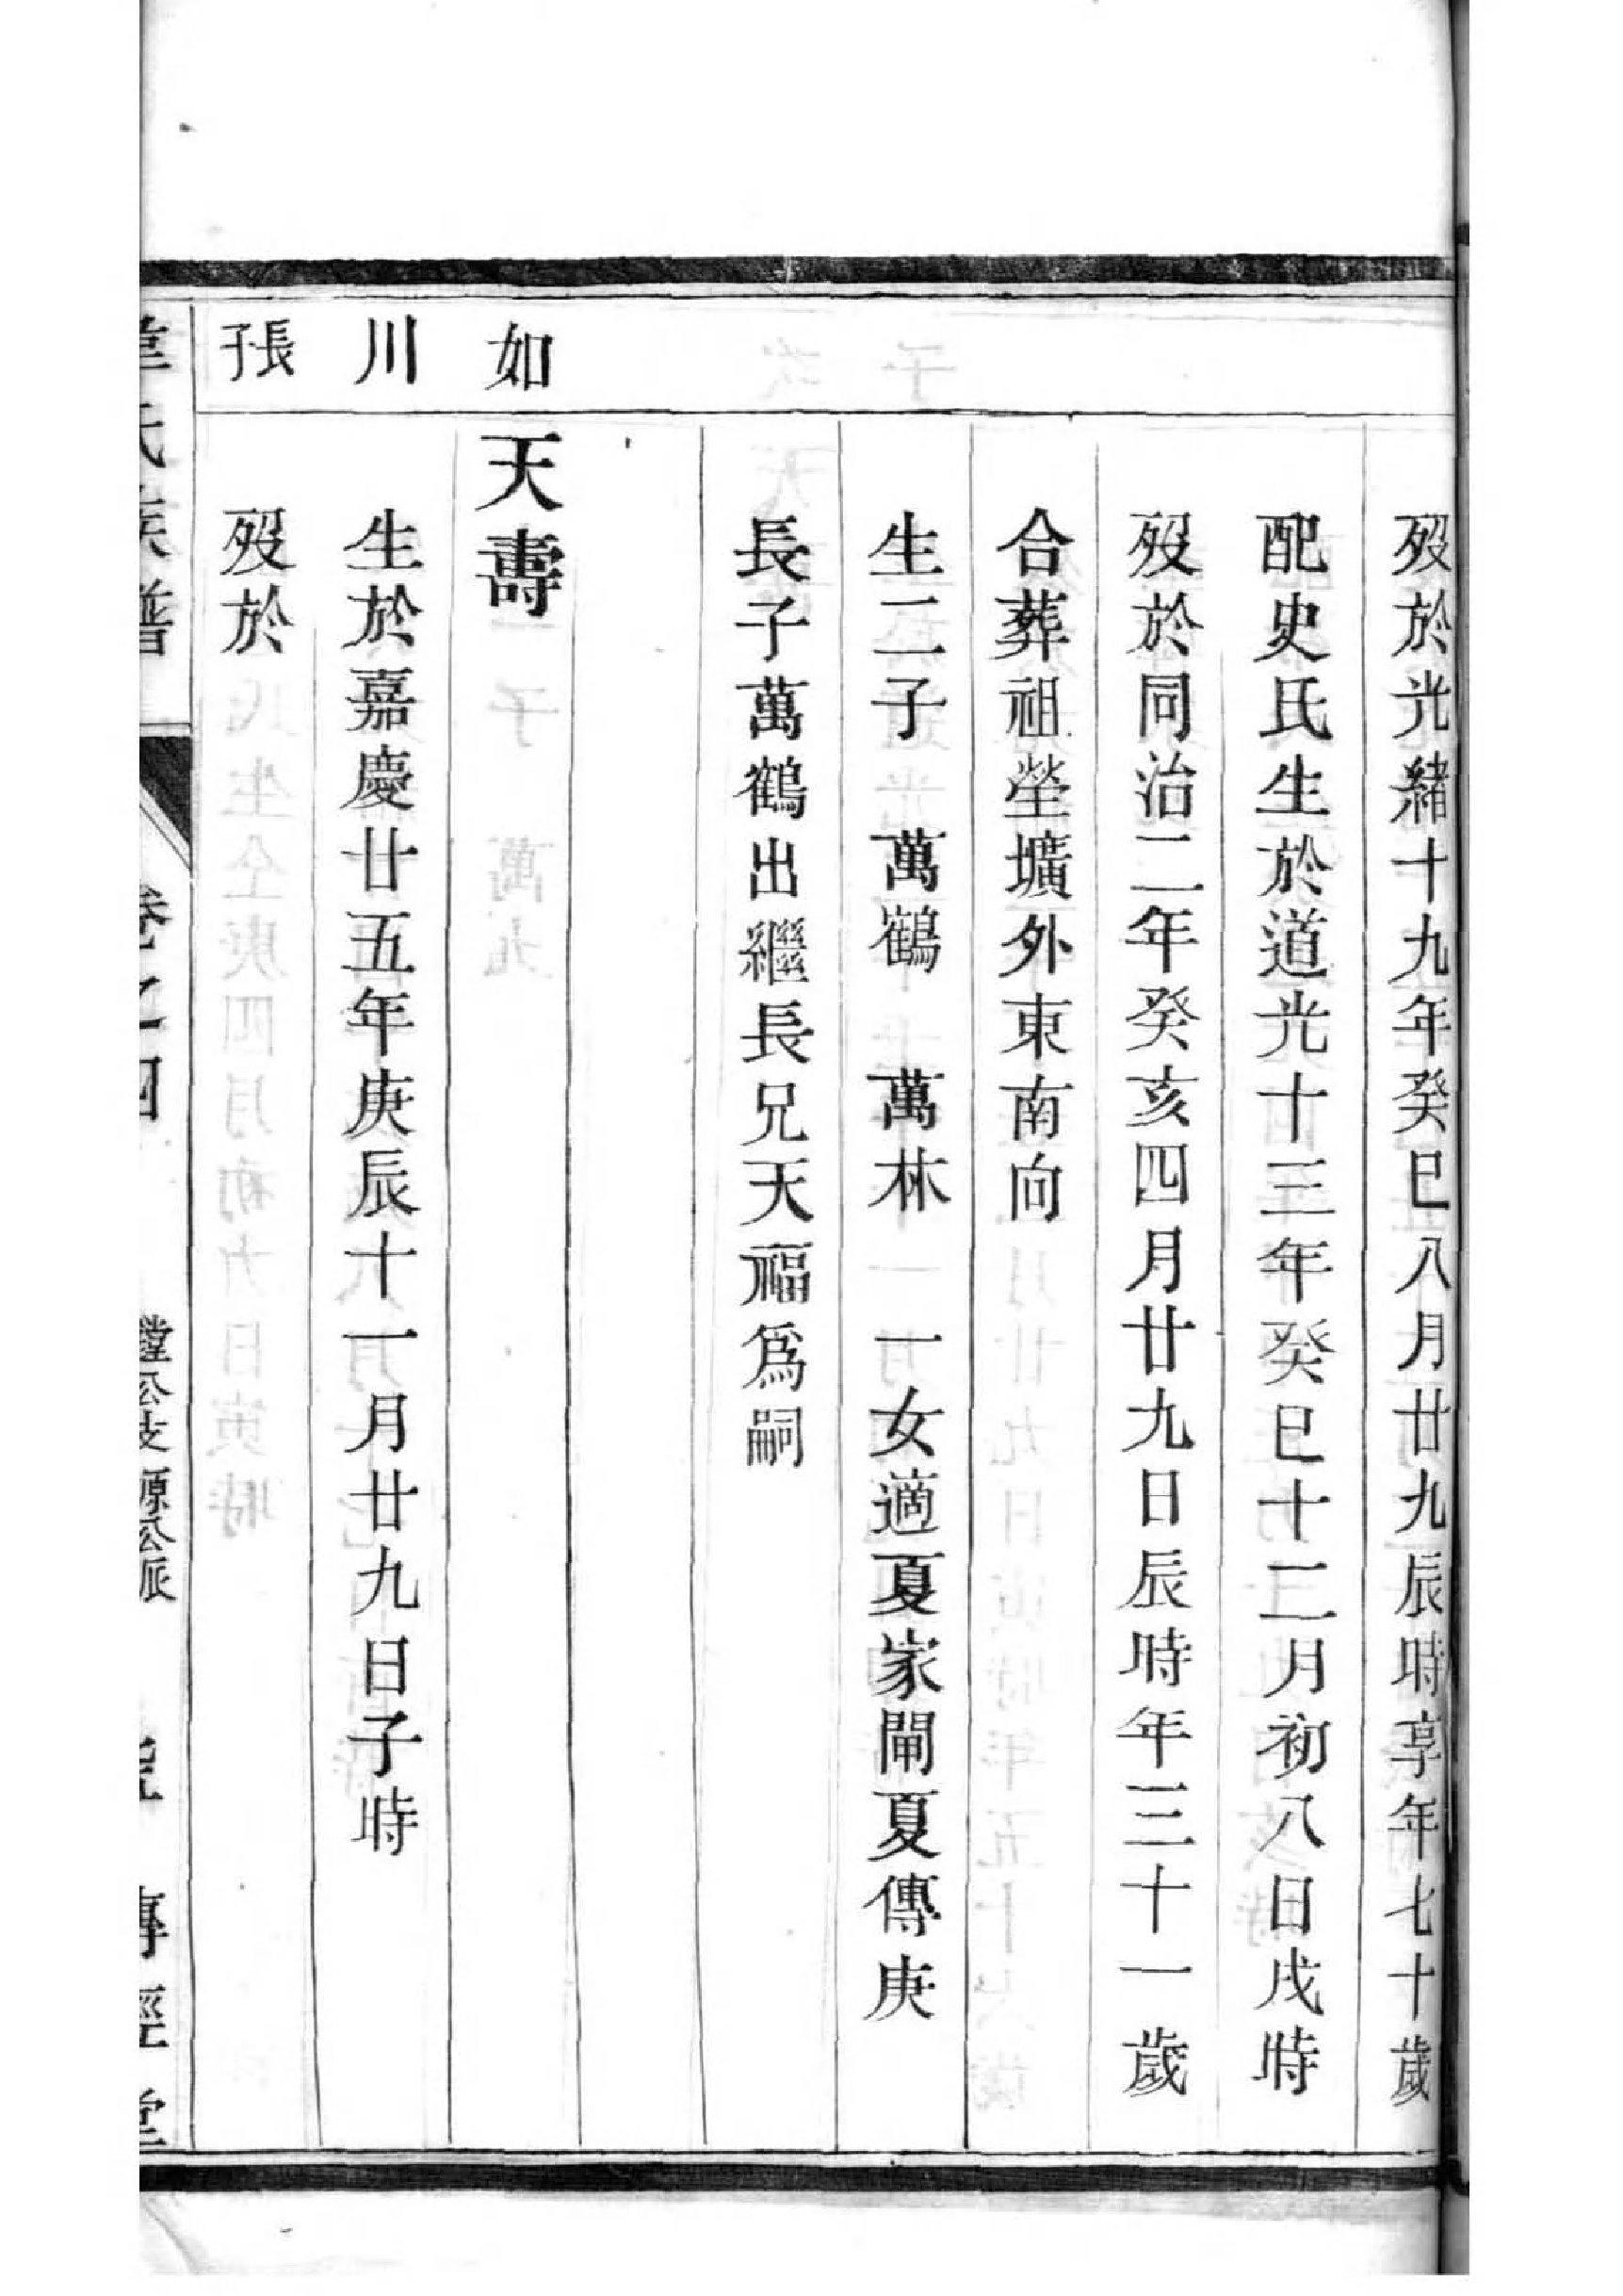 歿於光緒十九年癸巳八月廿九辰時享年七十歲
配史氏生於道光十三年癸巳十二月初八日戌時
歿於同治二年癸亥四月廿九日辰時年三十一歲
合葬祖塋壙外東南向
生二子 萬鶴 萬林 一女適夏家閘夏傳庚
長子萬鶴出繼長兄天福爲嗣
如
天壽
川
生於嘉慶廿五年庚辰十一月廿九日子時
張子
歿於
氏族譜 卷之四 公支源公派 傳經堂